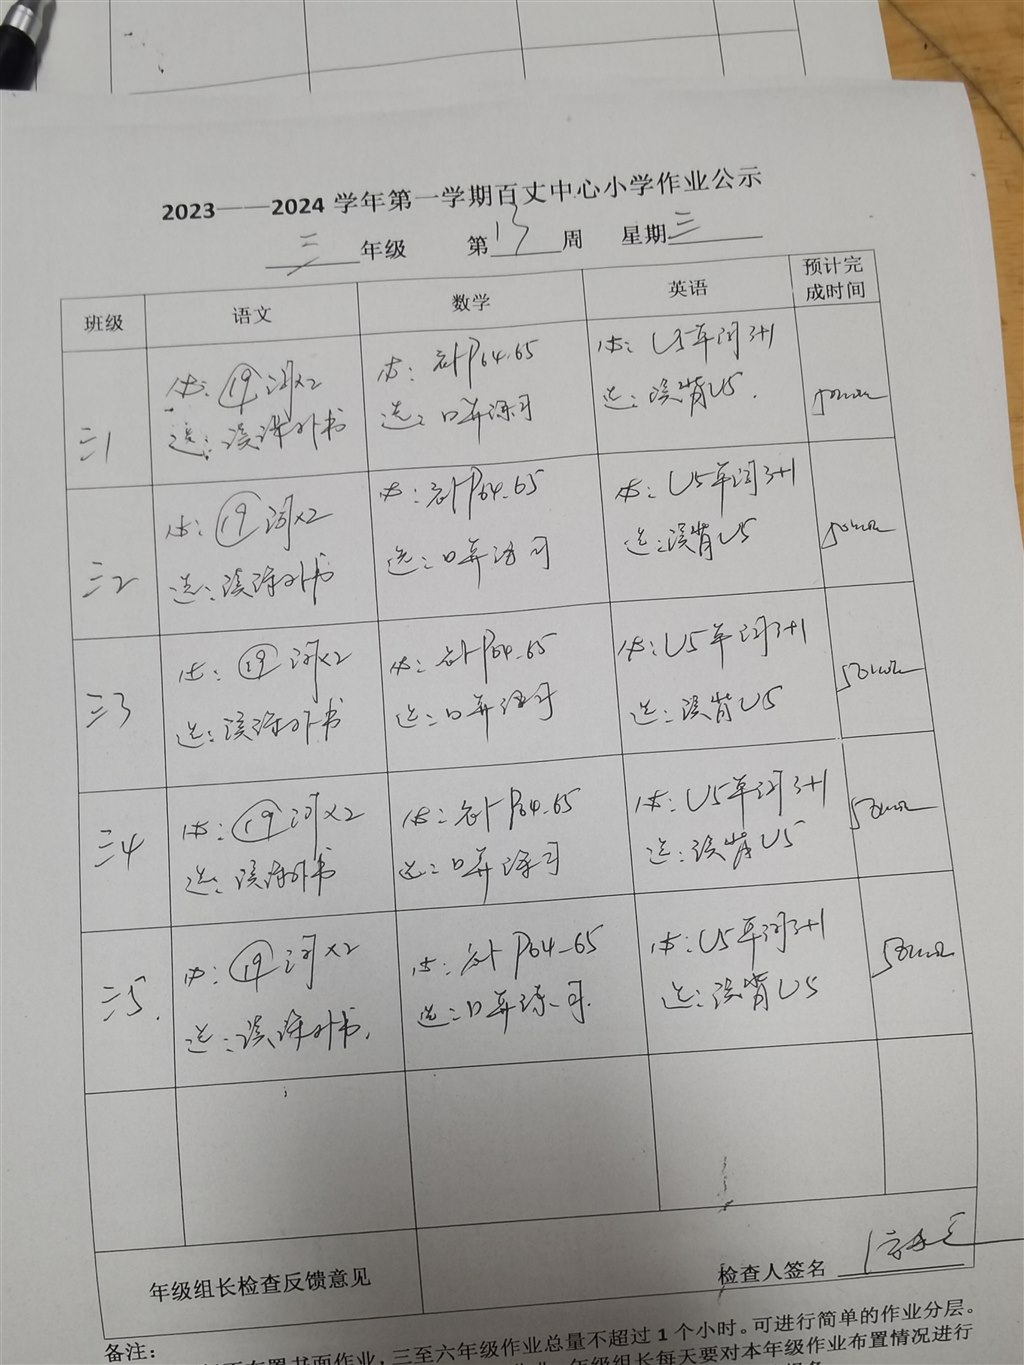 2023——2024 学年第一学期百丈中心小学作业公示
三 年级 第 13 周 星期 三
班级 语文 数学 英语 预计完成时间
三1
体: ⑲词×2
选: 读课外书
体: 计P64.65
选: 口算练习
体: U5单词3+1
选: 读背U5.
50min
三2
体: ⑲词×2
选: 读课外书
体: 计P64.65
选: 口算练习
体: U5单词3+1
选: 读背U5
50min
三3
体: ⑲词×2
选: 读课外书
体: 计P64.65
选: 口算练习
体: U5单词3+1
选: 读背U5
50min
三4
体: ⑲词×2
选: 读课外书
体: 计P64.65
选: 口算练习
体: U5单词3+1
选: 读背U5
50min
三5.
体: ⑲词×2
选: 读课外书.
体: 计P64-65
选: 口算练习.
体: U5单词3+1
选: 读背U5
50min
年级组长检查反馈意见
检查人签名
备注:
布置书面作业,三至六年级作业总量不超过 1 个小时。可进行简单的作业分层。
年级组长每天要对本年级作业布置情况进行